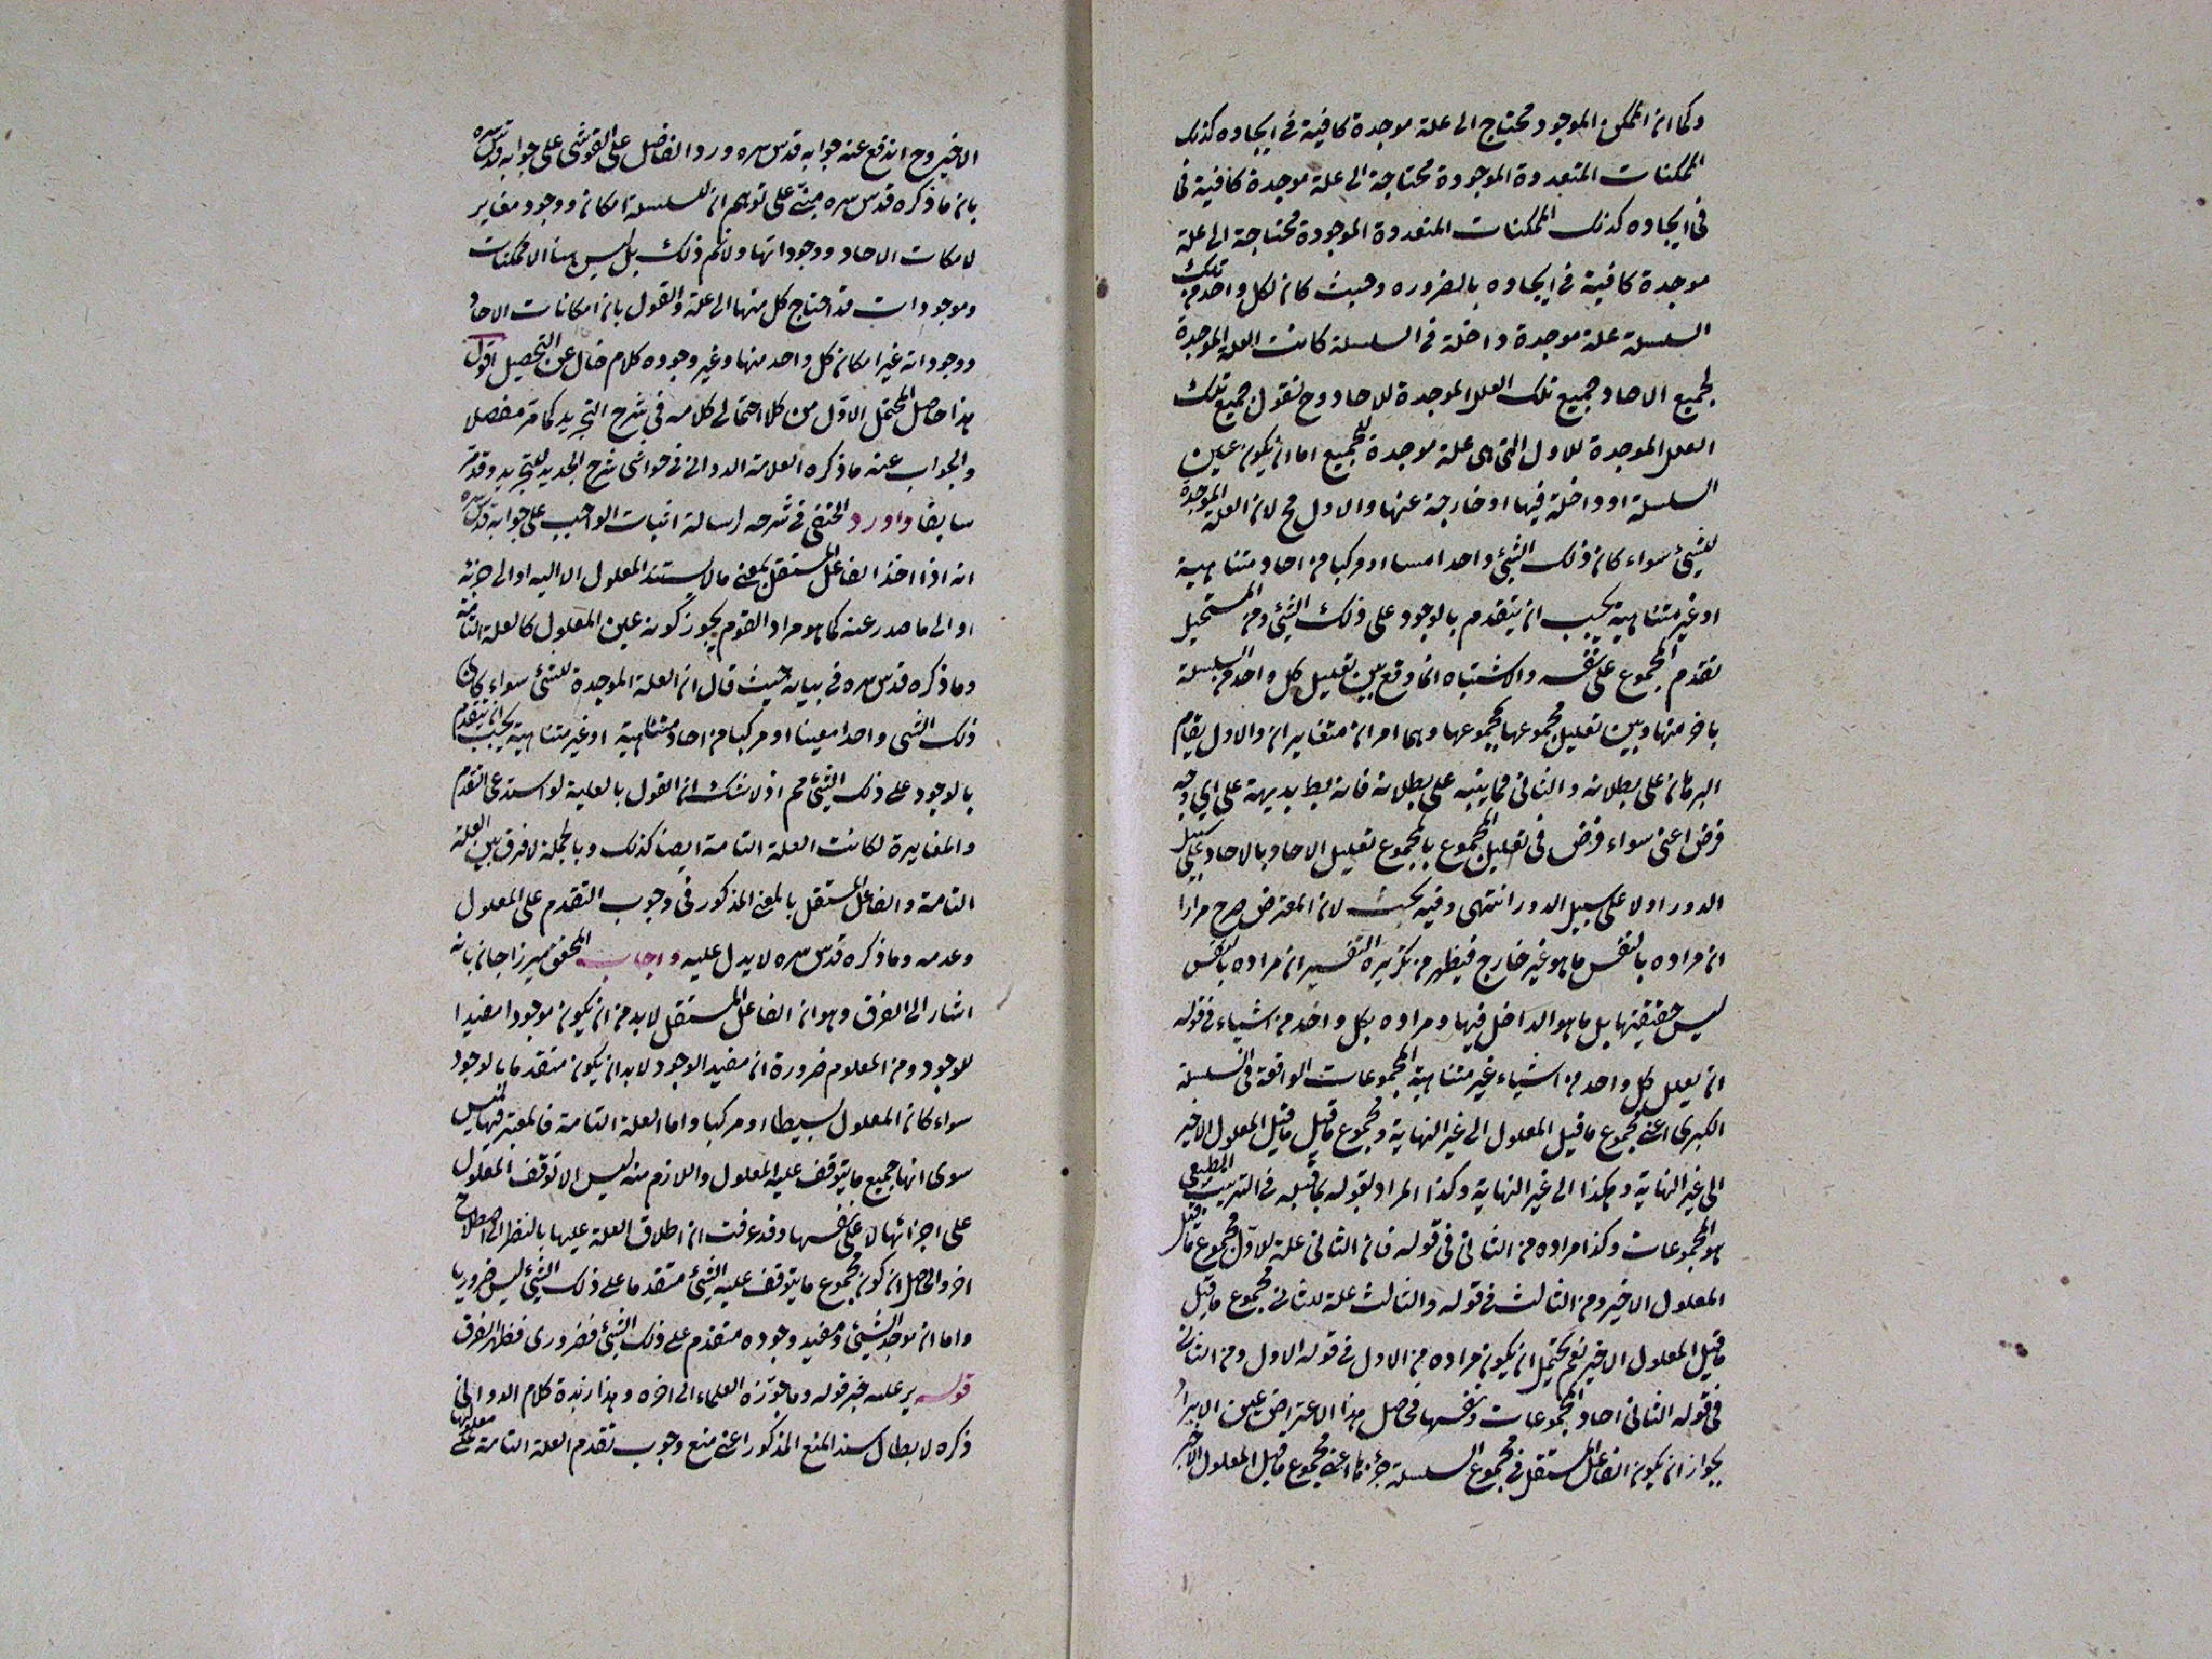 وكما ان الممكن الموجود محتاج الى علة موجدة كافية في ايجاده كذلك
الممكنات المتعددة الموجودة محتاجة الى علة موجدة كافية في
في ايجاده كذلك الممكنات المتعددة الموجودة محتاجة الى علة
موجدة كافية في ايجاده بالضرورة وحيث كان لكل واحد من تلك
السلسلة علة موجدة داخلة في السلسلة كانت العلة الموجدة
لجميع الاحاد جميع تلك العلل الموجدة للاحاد وح نقول جميع تلك
العلل الموجدة للاول التي هي علة موجدة للجميع اما ان يكون عين
السلسلة او داخلة فيها او خارجة عنها والاول مح لان العلة الموجدة
للشيئ سواء كان ذلك الشيئ واحدا معينا او مركبا من احاد متناهية
او غير متناهية يجب ان يتقدم بالوجود على ذلك الشيئ ومن المستحيل
تقدم المجموع على نفسه والاشتباه انما وقع بين تعليل كل واحد من السلسلة
باخر منها وبين تعليل مجموعها بمجموعها وهما امران متغايران والاول يقام
البرهان على بطلانه والثاني مما ينبه على بطلانه فانه بط بديهة على اي وجه
فرض اعني سواء فرض في تعليل المجموع بالمجموع تعليل الاحاد بالاحاد على سبيل
الدور او لا على سبيل الدور انتهى وفيه بحث لان المعترض صرح مرارا
ان مراده بالنفس ما هو غير خارج فيظهر من تكثيره التفسير ان مراده بالنفس
ليس حقيقتها بل ما هو الداخل فيها ومراده بكل واحد من اشياء في قوله
ان يعلل كل واحد من اشياء غير متناهية المجموعات الواقعة في السلسلة
الكبرى اعني مجموع ما قبل المعلول الى غير النهاية ومجموع ما قبل ما قبل المعلول الاخير
الى غير النهاية وهكذا الى غير النهاية وكذا المراد بقوله بما قبله في الترتيب الطبيعي
هو المجموعات وكذا مراده من الثاني في قوله فان الثاني علة للاول مجموع ما قبل
المعلول الاخير ومن الثالث في قوله والثالث علة للثاني مجموع ما قبل
ما قبل المعلول الاخير نعم يحتمل ان يكون مراده من الاول في قوله الاول ومن الثاني
في قوله الثاني احاد المجموعات ونفسها فحاصل هذا الاعتراض عين الايراد
بجواز ان يكون الفاعل المستقل في مجموع السلسلة جزئها اعني مجموع ما قبل المعلول الاخير
الاخير وح اندفع عنه جوابه قدس سره ورد الفاضل على القوشي على جوابه قدس سره
بان ما ذكره قدس سره مبني على توهم ان للسلسلة امكان ووجود مغاير
لامكانات الاحاد ووجوداتها ولا نم ذلك بل ليس هنا الا ممكنات
وموجودات قد احتاج كل منها الى علة والقول بان امكانات الاحاد
ووجوداته غير امكان كل واحد منها وغير وجوده كلام خال عن التحصيل اقول
هذا حاصل المحتمل الاول من كلا احتمالي كلامه في شرح التجريد كما مر مفصلا
والجواب عنه ما ذكره العلامة الدواني في حواشي شرح الجديد للتجريد وقد مر
سابقا واورد الحنفي في شرحه لرسالة اثبات الواجب على جوابه قدس سره
انه اذا اخذ الفاعل المستقل بمعنى ما لا يستند المعلول الا اليه او الى جزئه
او الى ما صدر عنه كما هو مراد القوم يجوز كونه عين المعلول كالعلة التامة
وما ذكره قدس سره في بيانه حيث قال ان العلة الموجدة للشيئ سواء كان
ذلك الشيئ واحدا معينا او مركبا من احاد متناهية او غير متناهية يجب ان يتقدم
بالوجود على ذلك الشيئ مم اذ لا شك ان القول بالعلية لو استدعى التقدم
والمغايرة لكانت العلة التامة ايضا كذلك وبالجملة لا فرق بين العلة
التامة والفاعل المستقل بالمعنى المذكور في وجوب التقدم على المعلول
وعدمه وما ذكره قدس سره لا يدل عليه واجاب المحقق ميرزا جان بانه
اشار الى الفرق وهو ان الفاعل المستقل لا بد من ان يكون موجودا مفيدا
للوجود ومن المعلوم ضرورة ان مفيد الوجود لا بد ان يكون متقدما بالوجود
سواء كان المعلول بسيطا او مركبا واما العلة التامة فالمعتبر فيها ليس
سوى انها جميع ما يتوقف عليه المعلول واللازم منه ليس الا توقف المعلول
على اجزائها لا على نفسها وقد عرفت ان اطلاق العلة عليها بالنظر الى اصطلاح
اخر والحاصل ان كون مجموع ما يتوقف عليه الشيئ متقدما على ذلك الشيئ ليس ضروريا
واما ان موجد الشيئ ومفيد وجوده متقدم على ذلك الشيئ فضروري فظهر الفرق
قوله ير عليه خبر قوله وما جوزه العلماء الى اخره وهذا زبدة كلام الدواني
ذكره لابطال سند المنع المذكور اعني منع وجوب تقدم العلة التامة على معلولها